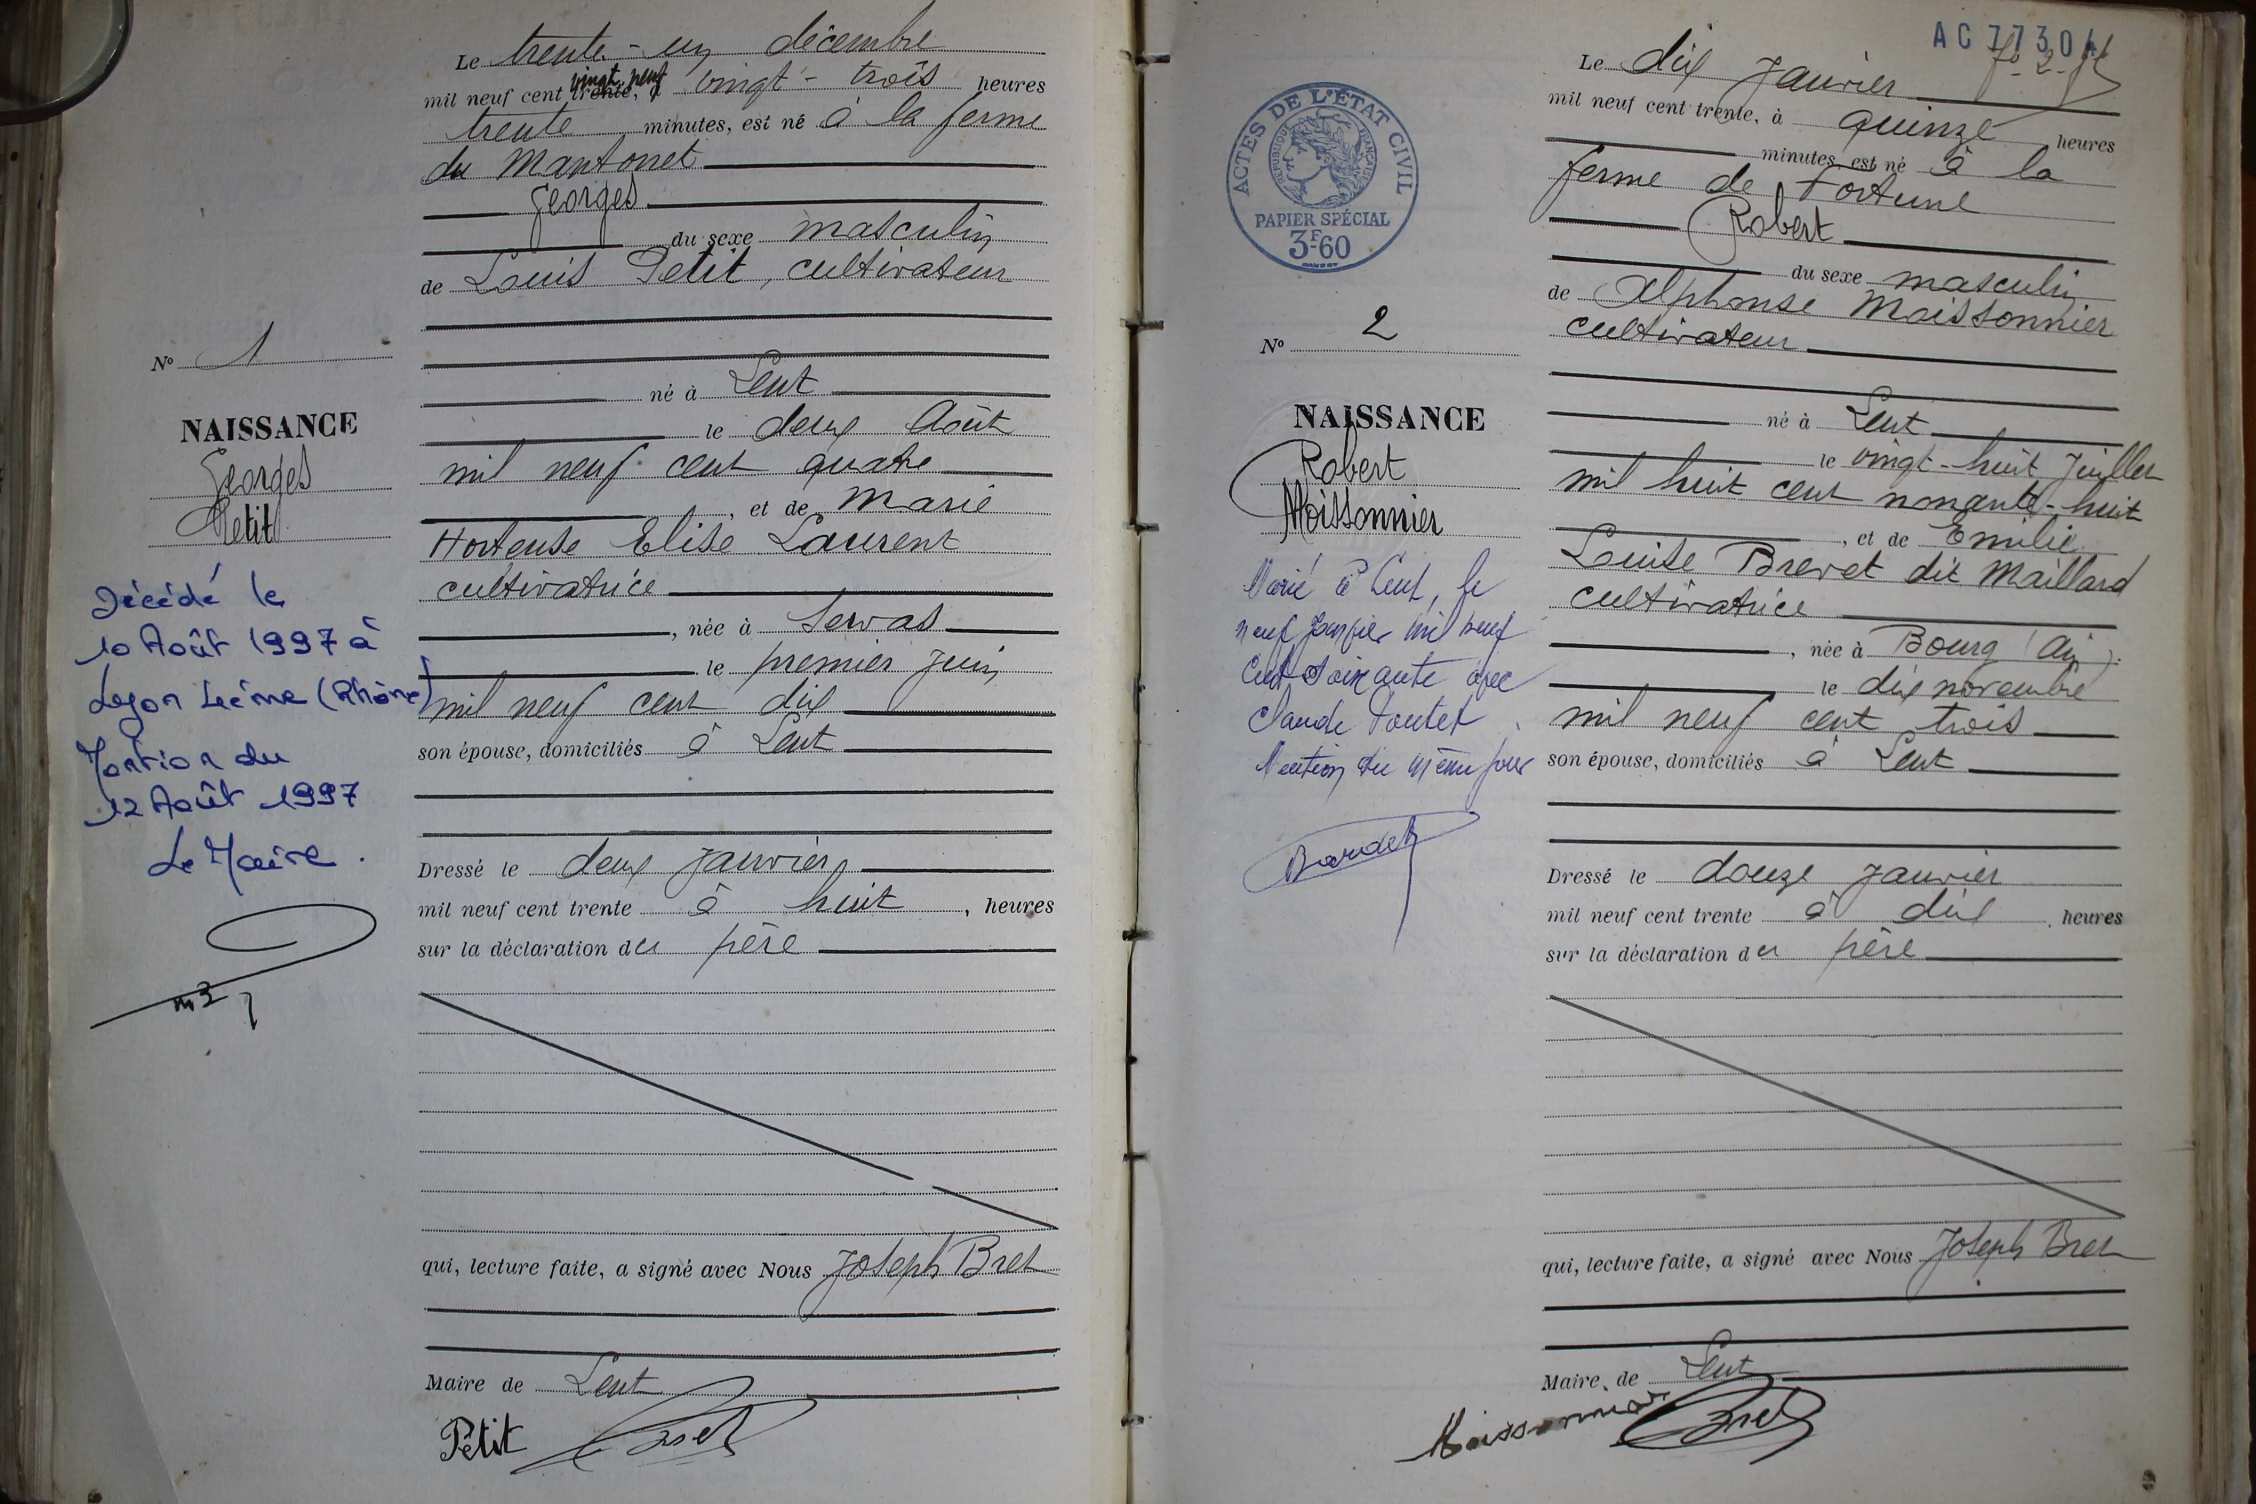 Le trente-un décembre
vingt neuf
mil neuf cent trente, à vingt-trois heures
trente minutes, est né à la ferme
du Mantonet
Georges
du sexe masculin
de Louis Petit, cultivateur
né à Lent
le deux Août
mil neuf cent quatre
, et de Marie
Hortense Elise Laurent
cultivatrice
, née à Servas
le premier Juin
mil neuf cent dix
son épouse, domiciliés à Lent
Dressé le deux Janvier
mil neuf cent trente à huit, heures
sur la déclaration du père
qui, lecture faite, a signé avec Nous Joseph Bret
Maire de Lent
Petit Bret
N° 1
NAISSANCE
Georges
Petit
Décédé le
10 Août 1997 à
Lyon 4ème (Rhône)
Mention du
12 Août 1997
Le Maire.
AC 77304
Le dix Janvier
mil neuf cent trente, à quinze heures
minutes est né à la
ferme de Fortune
Robert
du sexe masculin
de Alphonse Moissonnier
cultivateur
né à Lent
le vingt-huit Juillet
mil huit cent nonante-huit
, et de Emilie
Louise Brevet dit Maillard
cultivatrice
, née à Bourg (Ain).
le dix novembre
mil neuf cent trois
son épouse, domiciliés à Lent
Dressé le douze Janvier
mil neuf cent trente à dix heures
sur la déclaration du père
qui, lecture faite, a signé avec Nous Joseph Bret
Maire de Lent
Moissonnier Bret
ACTES DE L'ÉTAT CIVIL
RÉPUBLIQUE FRANÇAISE
PAPIER SPÉCIAL
3F60
N° 2
NAISSANCE
Robert
Moissonnier
Marié à Lent, le
neuf Janvier mil neuf
cent soixante avec
Claude Poutet
Mention du même jour